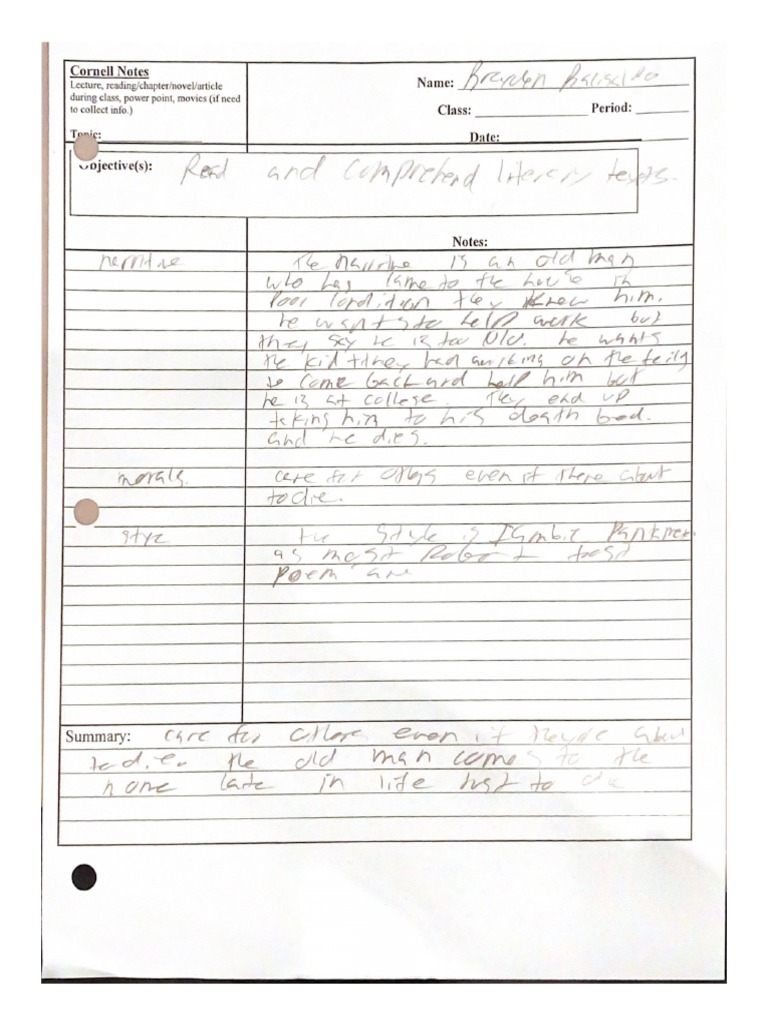 Cornell Notes
Lecture, reading/chapter/novel/article
during class, power point, movies (if need
to collect info.)
Name: Brayden
Class: Period:
Topic: Date:
Objective(s): Read and comprehend literary texts.
Notes:
narritive The narritive is an old man
who has came to the house in
poor condition they knew him.
he wants to help work but
they say he is too old. he wants
the kid they had working on the
to come back and help him but
he is at college. They end up
taking him to his death bed.
and he dies.
morals. care for others even if there about
to die.
style the style is Iambic
as most Robert frost
poem are
Summary: care for others even if they're about
to die. the old man comes to the
home late in life just to die